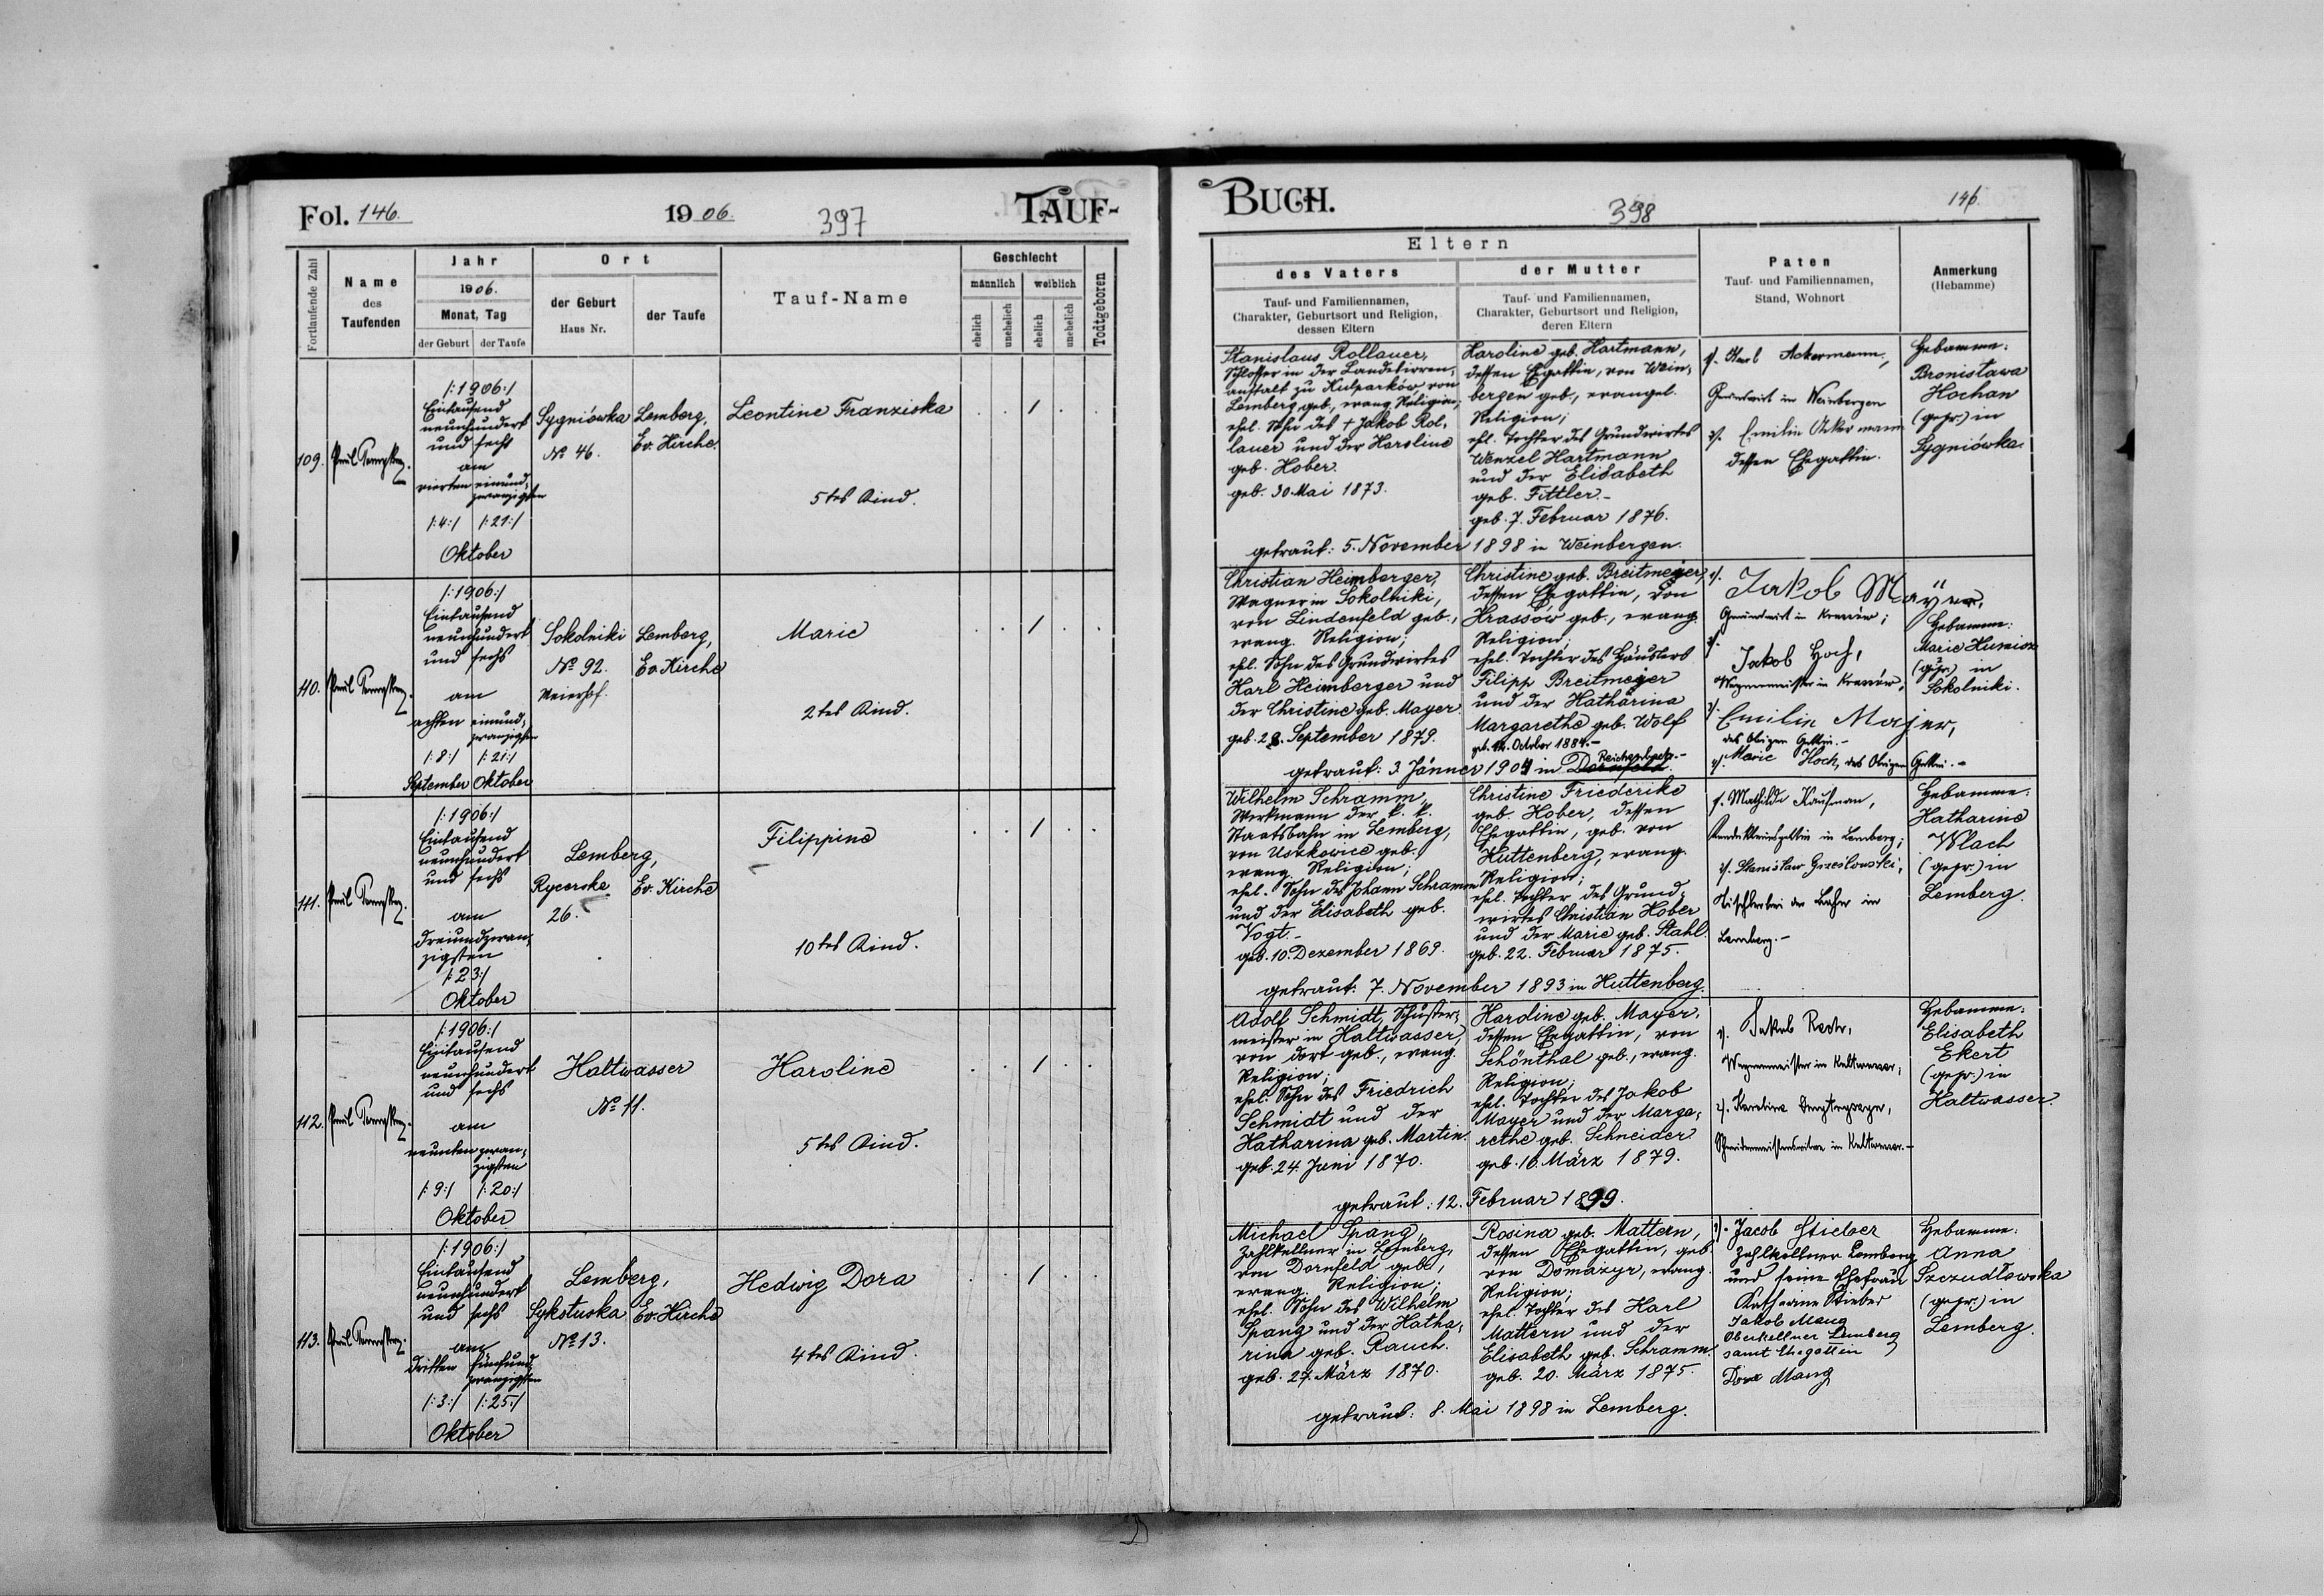 Fol. 146.
19 06.
397
TAUF-
Fortlaufende Zahl
Name
des
Taufenden
Jahr
1906.
Monat, Tag
der Geburt
der Taufe
Ort
der Geburt
Haus Nr.
der Taufe
Tauf-Name
Geschlecht
männlich
weiblich
ehelich
unehelich
ehelich
unehelich
Todtgeboren
109.
Paul
/:1906:/
Eintausend
neunhundert
und sechs
am
vierten
einund-
zwanzigsten
/:4:/ /:21:/
Oktober
Sygniówka
№ 46.
Lemberg,
Ev. Kirche.
Leontine Franziska
5tes Kind.
. . / . .
110.
Paul
/:1906:/
Eintausend
neunhundert
und sechs
am
achten
einund-
zwanzigsten
/:8:/ /:21:/
September Oktober
Sokolniki
№ 92.
Meierhof.
Lemberg,
Ev. Kirche
Marie
2tes Kind.
. . / . .
111.
Paul
/:1906:/
Eintausend
neunhundert
und sechs
am
dreiundzwan-
zigsten
/:23:/
Oktober
Lemberg,
Rycerska
26.
Ev. Kirche
Filippine
10tes Kind.
. . / . .
112.
Paul
/:1906:/
Eintausend
neunhundert
und sechs
am
neunten
zwan-
zigsten
/:9:/ /:20:/
Oktober
Kaltwasser
№ 11.
Karoline
5tes Kind.
. . / . .
113.
Paul
/:1906:/
Eintausend
neunhundert
und sechs
am
dritten
fünfund-
zwanzigsten
/:3:/ /:25:/
Oktober
Lemberg,
Sykstuska
№ 13.
Ev. Kirche
Hedwig Dora
4tes Kind.
. . / . .
BUCH.
398
146.
Eltern
des Vaters
Tauf- und Familiennamen,
Charakter, Geburtsort und Religion,
dessen Eltern
der Mutter
Tauf- und Familiennamen,
Charakter, Geburtsort und Religion,
deren Eltern
Paten
Tauf- und Familiennamen,
Stand, Wohnort
Anmerkung
(Hebamme)
Stanislaus Rollauer,
Schlosser in der Landesirren-
anstalt zu Kulparków von
Lemberg geb., evang. Religion;
ehel. Sohn des + Jakob Rol-
lauer und der Karoline
geb. Hober.
geb. 30. Mai 1873.
Karoline geb. Hartmann,
dessen Ehegattin, von Wein-
bergen geb., evangel.
Religion;
ehl. Tochter des Grundwirtes
Wenzel Hartmann
und der Elisabeth
geb. Fittler.-
geb. 7. Februar 1876.
getraut: 5. November 1898 in Weinbergen.
1/. Karl Ackermann,
Grundwirt in Weinbergen
2/. Emilie Ackermann
dessen Ehegattin.
Hebamme:
Bronisława
Hochan
(gepr.) in
Sygniówka.
Christian Heimberger,
Wagner in Sokolniki,
von Lindenfeld geb.,
evang. Religion;
ehl. Sohn des Grundwirtes
Karl Heimberger und
der Christine geb. Mayer.
geb. 28. September 1879.
Christine geb. Breitmeyer,
dessen Ehegattin, von
Krassów geb., evang.
Religion;
ehel. Tochter des Häuslers
Filipp Breitmeyer
und der Katharina
Margarethe geb. Wolf
geb. 12. October 1884.-
Reichenbach.-
getraut: 3. Jänner 1904 in Dornfeld.
1/. Jakob Mayer,
Grundwirt in Krassów;
2/. Jakob Hoch,
Wagnermeister in Krassów;
3/. Emilie Majer,
des Obigen Gattin.-
4/. Marie Hoch, des Obigen Gattin.-
Hebamme:
Marie
(gepr.) in
Sokolniki.
Wilhelm Schramm,
Werkmann der k. k.
Staatsbahn in Lemberg,
von Uszkowice geb.,
evang. Religion;
ehel. Sohn des Johann Schramm
und der Elisabeth geb.
Vogt.-
geb. 10. Dezember 1869.
Christine Friederike
geb. Hober, dessen
Ehegattin, geb. von
Huttenberg, evang.
Religion;
ehel. Tochter des Grund-
wirtes Christian Hober
und der Marie geb. Stahl.
geb. 22. Februar 1875.
getraut: 7. November 1893 in Huttenberg.
1/. Mathilde Kaufman,
in Lemberg;
2/. Stanisław
Tischler bei der Bahn in
Lemberg.-
Hebamme:
Katharine
Wlach
(gepr.) in
Lemberg.
Adolf Schmidt, Schuster-
meister in Kaltwasser,
von dort geb., evang.
Religion;
ehel. Sohn des Friedrich
Schmidt und der
Katharina geb. Martin.
geb. 24. Juni 1870.
Karoline geb. Mayer,
dessen Ehegattin, von
Schönthal geb., evang.
Religion;
ehel. Tochter des Jakob
Mayer und der Marga-
rethe geb. Schneider
geb. 16. März 1879.
getraut: 12. Februar 1899.
1/. Jakob
Wagnermeister in Kaltwasser;
2/. Karoline
in Kaltwasser.-
Hebamme:
Elisabeth
Ekert
(gepr.) in
Kaltwasser.
Michael Spang,
Zahlkellner in Lemberg,
von Dornfeld geb.,
evang. Religion;
ehel. Sohn des Wilhelm
Spang und der Katha-
rina geb. Rauch.
geb. 27. März 1870.
Rosina geb. Mattern,
dessen Ehegattin, geb.
von Domazyr, evang.
Religion;
ehel. Tochter des Karl
Mattern und der
Elisabeth geb. Schramm.
geb. 20. März 1875.
getraut: 8. Mai 1898 in Lemberg.
1/. Jacob Stieber
Zahlkellner Lemberg
und seine Ehefrau
Katharine Stieber
Jakob Mang
Oberkellner Lemberg
samt Ehegattin
Dora Mang
Hebamme:
Anna
Szczudłowska
(gepr.) in
Lemberg.